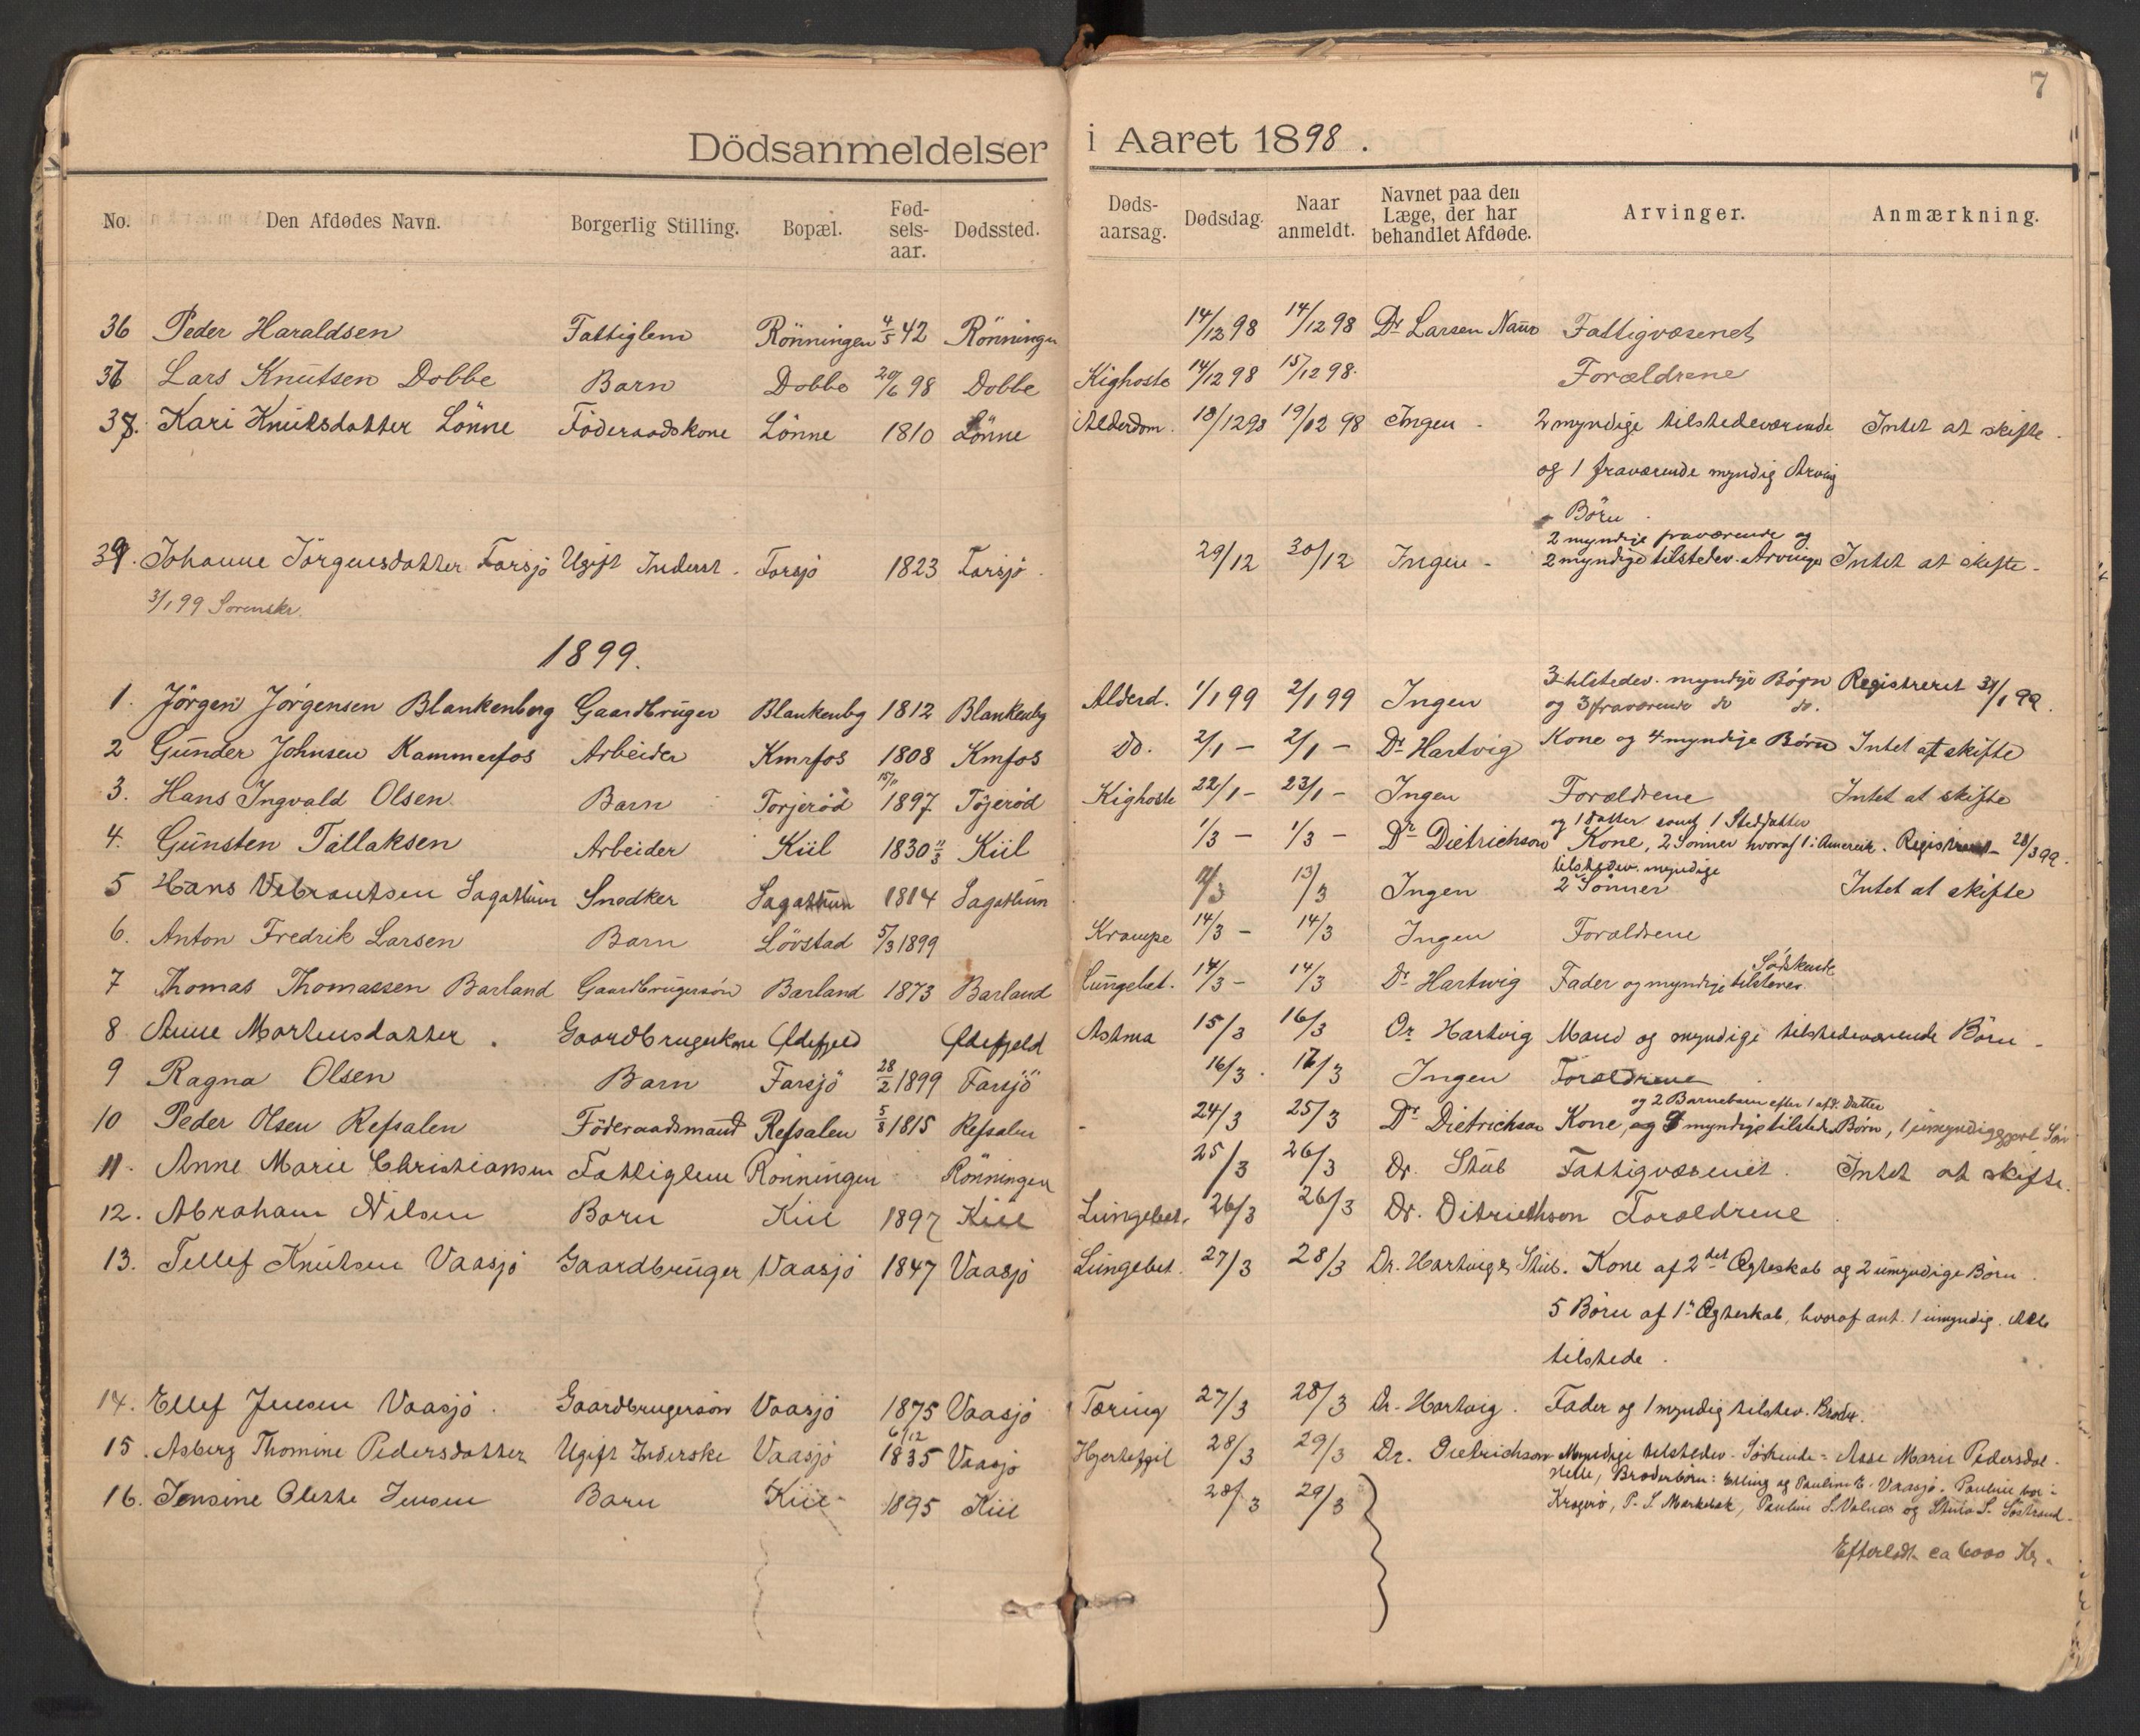 7
Dödsanmeldelser i Aaret 1898.
No. Den Afdødes Navn. Borgerlig Stilling. Bopæl. Fød-sels-aar. Dødssted. Døds-aarsag. Dødsdag. Naar anmeldt. Navnet paa den Læge, der har behandlet Afdøde. Arvinger. Anmærkning.
36 Peder Haraldsen Fattiglem Rönningen 4/5 42 Rönningen 14/12 98 14/12 98 Dr Larsen Fattigvæsenet
37 Lars Knutsen Dobbe Barn Dobbe 20/6 98 Dobbe Kighoste 14/12 98 15/12 98. Forældrene
38. Kari Knutsdatter Lönne Föderaadskone Lönne 1810 Lönne Alderdom. 18/12 98 19/12 98 Ingen - 2 myndige tilstedeværende Intet at skifte.
og 1 fraværende myndig Arving
- Börn.
2 myndige fraværende og
39. Johanne Jörgensdatter Farsjö Ugift Inderst. Farsjö 1823 Farsjö. 29/12 30/12 Ingen - 2 myndige tilstedev. Arvinger Intet at skifte -
3/1 99 Sorenskr.
1899.
3 tilstedev. myndige Börn Registreret 31/1 99.
1. Jörgen Jörgensen Blankenberg Gaardbruger Blankenbg 1812 Blankenbg Alderd. 1/1 99 2/1 99 Ingen og 3 fraværende do do.
2 Gunder Johnsen Kammerfos Arbeider Kmrfos 1808 Kmfos do. 2/1 - 2/1 - Dr Hartvig Kone og 4 myndige Börn Intet at skifte
3. Hans Ingvald Olsen Barn Torjeröd 15/11 1897 Töjeröd Kighoste 22/1 - 23/1 - Ingen Forældrene Intet at skifte
og 1 datter samt 1 Steddatter
4. Gunsten Tallaksen Arbeider Kiil 1830 11/3 Kiil 1/3 - 1/3 - Dr Dietrichson Kone, 2 Sönner hvoraf 1 i Amerik. Registreret - 28/3 99.
tilstedev. myndige
5 Hans Vebrantsen Sagatun Snedker Sagatun 1814 Sagatun 13/3 Ingen 2 Sönner Intet at skifte
6. Anton Fredrik Larsen Barn Lövstad 5/3 1899 Krampe 14/3 - 14/3 Ingen Forældrene
Södskende
7 Thomas Thomassen Barland Gaardbrugersön Barland 1873 Barland Lungebet. 14/3 - 14/3 Dr Hartwig Fader og myndige tilstever.
8 Anne Mortensdatter. Gaardbrugerkone Astma 15/3 16/3 Dr Hartvig Mand og myndige tilstedeværende Börn -
9 Ragna Olsen Barn Farsjö 28/2 1899 Farsjö 16/3. 17/3 Ingen Forældrene
og 2 Barnebarn efter 1 afd. Datter
10 Peder Olsen Refsalen Föderaadsmand Refsalen 5/8 1815 Refsalen - 24/3 25/3 Dr Dietrichson Kone, og myndige tilstedev Börn, 1 umyndiggjort Sön
11. Anne Marie Christiansen Fattiglem Rönningen Rönningen 25/3 26/3 Dr. Stub Fattigvæsenet. Intet at skifte.
12. Abraham Nilsen Barn Kiil 1897 Kiil Lungebet. 26/3 26/3 Dr. Ditrichson Forældrene
13. Tellef Knutsen Vaasjö Gaardbruger Vaasjö 1847 Vaasjö Lungebet. 27/3 28/3 Dr. Hartvig & Stub. Kone af 2det Ægteskab og 2 umyndige Börn.
5 Börn af 1ste Ægteskab, hvoraf ant. 1 umyndig. Alle
tilstede.
14. Ellef Jensen Vaasjö. Gaardbrugersön Vaasjö 1875 Vaasjö Tæring 27/3 28/3 Dr. Hartvig. Fader og 1 myndig tilstev. Broder.
15. Asberg Thomine Pedersdatter Ugift Inderske Vaasjö 6/12 1835 Vaasjö Hjertefejl 28/3 29/3 Dr. Dietrichson Myndige tilstedev. Söskende = Asse Marie Pedersdat.
Broderbörn: Elling og Pauline E. Vaasjö. Pauline
16. Jensine Olette Jensen Barn Kiil 1895 Kiil 28/3 29/3 Kragerö, P. S. Mærkebæk, Pauline S. Valnæs og S. Söstrand.
Efterladt ca 6000 Kr.